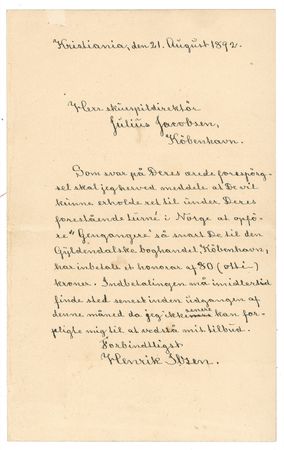 Kristiania, den 21. August 1892.
Herr skuespildirektör
Julius Jacobsen,
København.
Som svar på Deres ærede forespörg-
sel skal jeg herved meddele at De vil
kunne erholde ret til under Deres
forestående turné i Norge at opfö-
re "Gengangere" så snart De til den
Gyldendalske boghandel, København,
har inbetalt et honorar af 80 (otti)
kroner. Indbetalingen må imidlertid
finde sted senest inden udgangen af
denne måned da jeg ikke senere kan for-
pligte mig til at vedstå mit tilbud.
Forbindtligst
Henrik Ibsen.